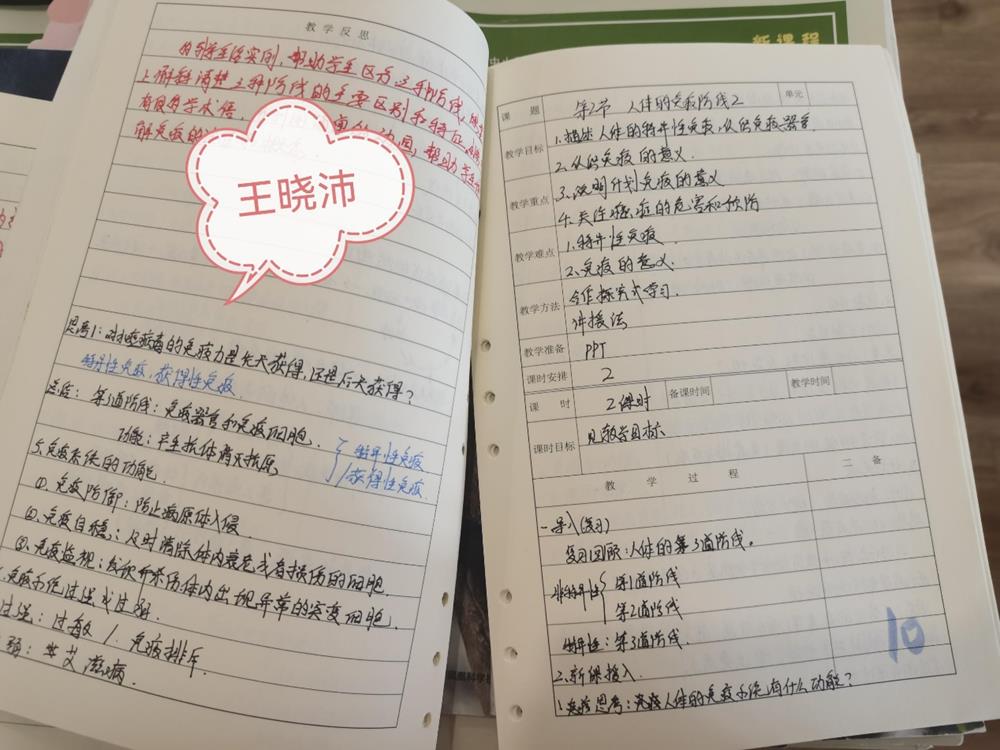 教学反思
列举生活实例，帮助学生区分三种防线，
上解释清楚三种防线的主要区别和特征
有很多学术语，
解免疫的
王晓沛
思考1：对抗病毒的免疫力是先天获得，还是后天获得？
特异性免疫，获得性免疫
总结：第3道防线：免疫器官和免疫细胞。
功能：产生抗体消灭抗原。
特异性免疫
获得性免疫
5.免疫系统的功能
①.免疫防御：防止病原体入侵
②.免疫自稳：及时清除体内衰老或者损伤的细胞.
③.免疫监视：发次并杀伤体内出现异常的突变细胞.
免疫系统过强或过弱.
过强：过敏 / 免疫排斥
弱：艾滋病.
新课程
课题 第2节 人体的免疫防线2 单元
教学目标 1.描述人体的特异性免疫，认识免疫器官
2.认识免疫的意义.
教学重点 3.说明计划免疫的意义
4.关注癌症的危害和预防
教学难点 1.特异性免疫.
2.免疫的意义.
教学方法 合作探究式学习.
讲授法
教学准备 PPT
课时安排 2
课时 2课时 备课时间 教学时间
课时目标 见教学目标
教学过程 二备
一导入(复习)
复习回顾：人体的第3道防线。
非特异性 第1道防线
第2道防线
特异性：第3道防线.
2.新课授入
10
1.免疫思考：免疫人体的免疫系统有什么功能？
凤凰科学